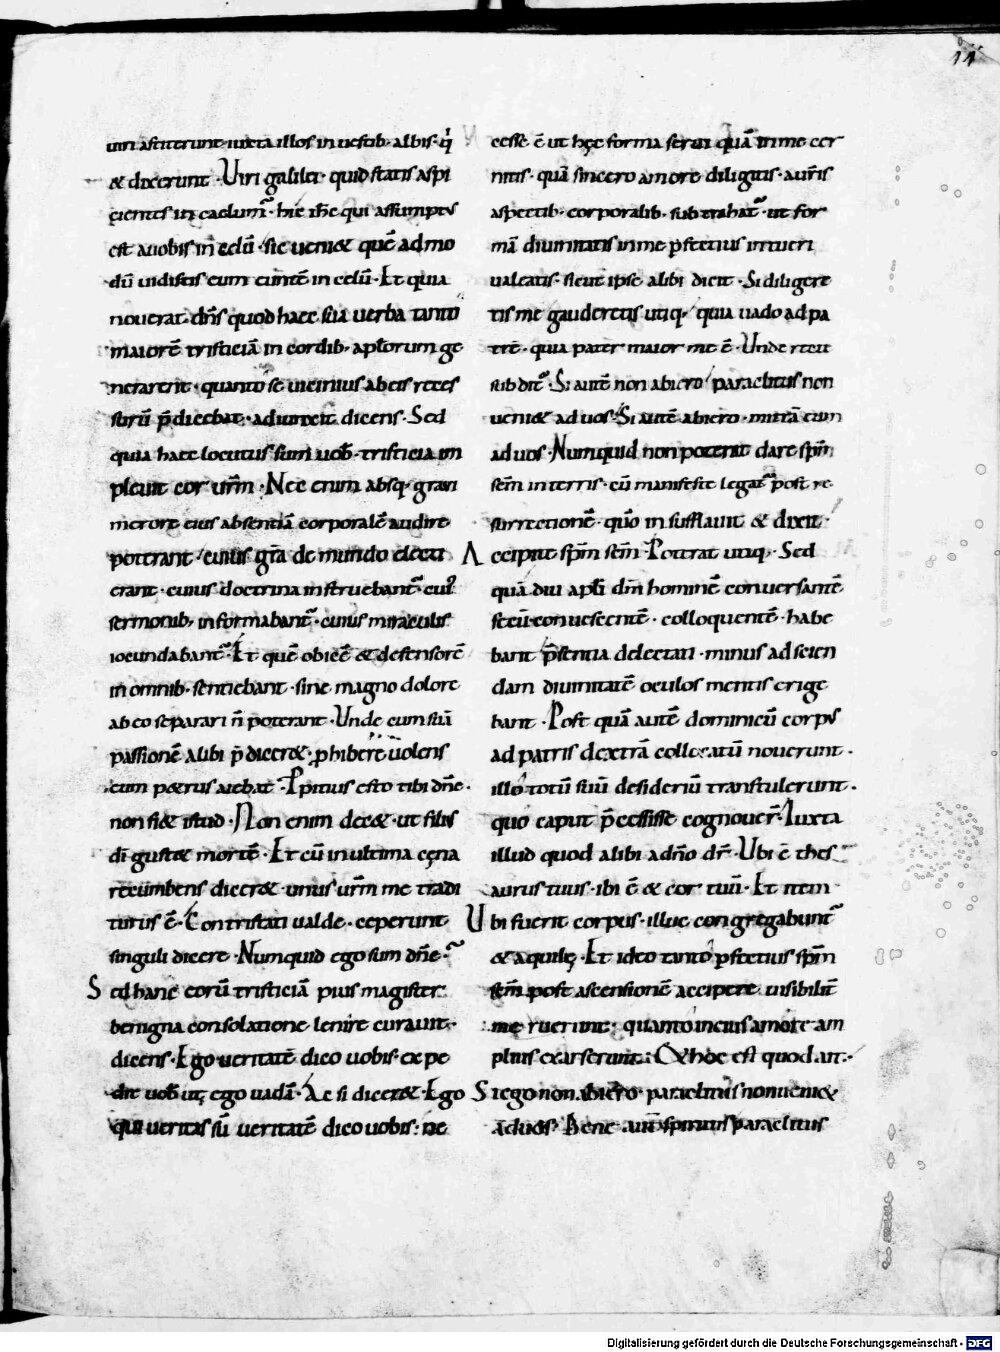 11
uiri astiterunt iuxta illos in uestib· albis· q̇
& dixerunt· Uiri galilei· quid statis aspi
cientes in caelum? hic ih̄c qui assumptus
est auobis in cęlū· sic ueni& quē ad mo
dū uidistis eum euntē in celū· Et quia
nouerat dn̄s quod haec sua uerba tanto
maiorē tristiciā in cordib· aplorum ge
nerarent· quanto se uicinius ab eis reces
surū p̄dicebat· adiunxit dicens· Sed
quia haec locutus sum uob̄· tristicia im
pleuit cor urm̄· Nec enim absq· graui
merore eius absentiā corporalē audire
poterant· cuius gr̄a de mundo electi
erant· cuius doctrina instruebant᷑· cui᷒
sermonib· informabant᷑· cuius miraculis
iocundabant᷑· Et quē obicē & defensorē
in omnib· sentiebant· sine magno dolore
ab eo separari n̄ poterant· Unde cum suā
passionē alibi p̄dicer&· phibere uolens
eum p&rus aiebat· Ppitius esto tibi dn̄e·
non fi& istud· Non enim dec&· ut filius
di gust& mortē· Et cū in ultima cęna
recumbens dicer&· unus urm̄ me tradi
turus ē· Contristati ualde· ceperunt
singuli dicere· Numquid ego sum dn̄e·
Sed hanc eorū tristiciā pius magister
benigna consolatione lenire curauit·
dicens· Ego ueritatē dico uobis· expe
dit uob̄ ut ego uadā· Ac si dicer&· Ego
qui ueritas sū ueritatē dico uobis· ne
cesse ē ut hęc forma serui quā in me cer
nitis· quā sincero amore diligitis· aurīs
aspectib· corporalib· subtrahat᷑· ut for
mā diuinitatis in me pfectius intueri
ualeatis· sicut ipse alibi dicit· Si diligere
tis me gauderetis utiq· quia uado ad pa
trē· quia pater maior me ē· Unde recte
subdit᷑· Si autē non abiero paraclitus non
ueni& ad uos· Si autē abiero· mittā eum
ad uos· Numquid non poterat dare spm̄
scm̄ in terris· cū manifeste legat᷑ post re
surrectionē· quo insufflauit & dixit·
Accipite spm̄ scm̄· Poterat utiq· Sed
quā diu apli dm̄ hominē conuersantē
secū conuescentē· colloquentē· habe
bant p̄sentia delectati· minus ad scien
dam diuinitatē oculos mentis erige
bant· Post quā autē dominicū corpus
ad patris dexterā collocatū nouerunt·
illo totū suū desideriū transtulerunt·
quo caput p̄cessisse cognouer̄· Iuxta
illud quod alibi a dn̄o dr̄· Ubi ē thes
aurus tuus· ibi ē & cor tuū· Et item
Ubi fuerit corpus· illuc congregabunt᷑
& aquilę· Et ideo tanto pfectius spm̄
scm̄ post ascensionē accipere uisibilit̄
meruerunt· quanto in eius amore am
plius exarserunt· Et hoc est quod ait·
Si ego non abiero· paraclitus non ueni&
ad uos· Bene aut̄ spiritus paraclitus
Digitalisierung gefördert durch die Deutsche Forschungsgemeinschaft - DFG